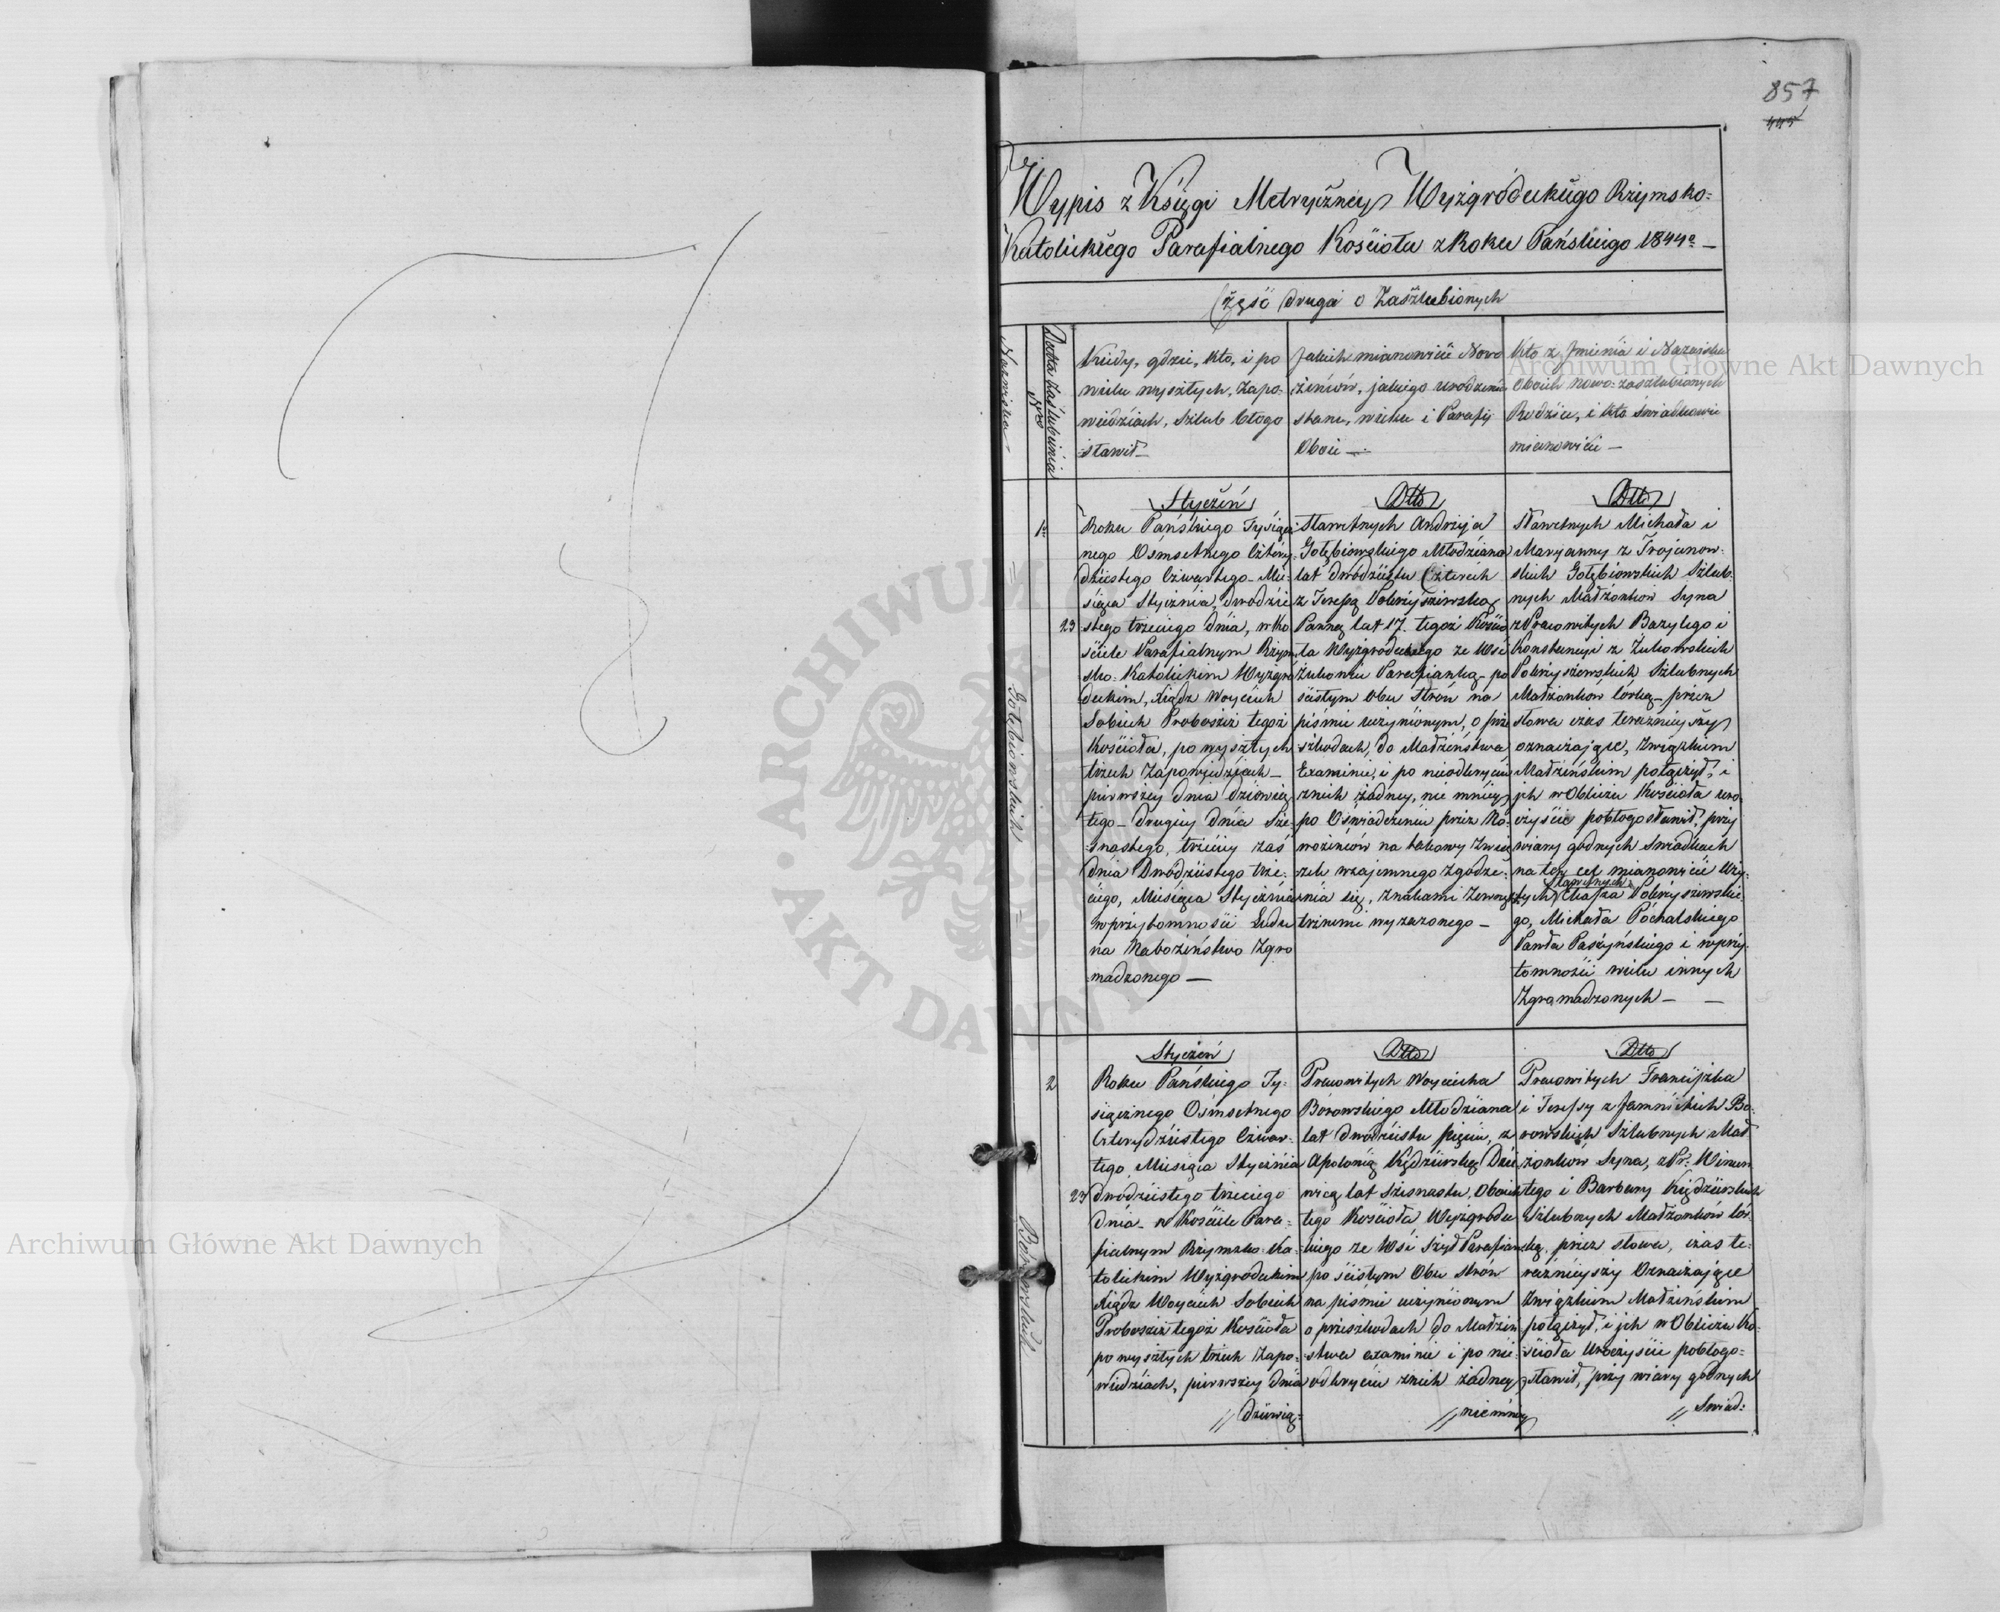 857
Wypis z Księgi Metryczney Wyżgródeckiego Rzymsko=
Katolickiego Parafialnego Kościoła z Roku Pańskiego 1844o
Część druga o Zaszlubionych
Nazwiska
Data Zaślubienia
Nro
Kiedy, gdzie, kto, i po
wielu wyszłych, zapo-
wiedziach, szlub błogo
sławił
Jakich mianowicie Nowo
żeńców, jakiego urodzenia
stanu, wieku i Parafij
Oboie
Kto z Jmienia i Nazwiska
Oboich nowo-zaszlubionych
Rodzice, i kto świadkowie
mianowicie
Gołębiowskich
1
23
Styczeń
Roku Pańskiego Tysiącz
nego Osmsetnego Cztery-
dziestego Czwartego Mie-
siąca Stycznia, dwódzie
stego trzeciego dnia, w Ko
ściele Parafialnym Rzym
sko-Katolickim Wyżgró
deckim, Xiądz Woyciech
Sobiech Proboszcz tegoż
Kościoła, po wyszłych
trzech Zapowiedziach
pierwszey dnia dziewią
tego drugiey dnia Sze-
snastego, trzeciey zaś
dnia Dwódziestego trze-
ciego, Miesiąca Stycznia
w przytomności Ludu
na Nabożeństwo Zgro
madzonego
Dtto
Sławetnych Andrzeja
Gołębiowskiego Młodziana
lat dwódziestu Czterech
z Teressą Pokrzyszewską
Panną lat 17. tegoż Kościo
ła Wyżgródeckiego ze Wsi
Parafianką po
ścisłym obu Strón na
piśmie uczynionym, o prze
szkodach, do Małżeństwa
Examinie, i po nieodkryciu
znich żadney, nie mniey
po Oświadczeniu przez No-
wożeńców na takowy Zwią
zek wzajemnego Zgodze-
nia się, Znakami Zewnę
trznemi wyrażonego
Dtto
Sławetnych Michała i
Maryanny z Trojanow-
skich Gołębiowskich Szlub-
nych Małżonków Syna
z Pracowitych Bazylego i
Konstancyi z Żukowskich
Pokrzyszewskich Szlubnych
Małżonków Córką przez
słowa czas teraznieyszy
oznaczające, Związkiem
Małżeńskim połączył, i
ich w Obliczu Kościoła uro-
czyście pobłogosławił, przy
wiary godnych Swiadkach
na tóy cel mianowicie Uży-
Sławetnych
tych Eliasza Pokrzyszewskie
go, Michała Póchalskiego
Pawła Paszyńskiego i w przy-
tomności wielu innych
Zgromadzonych
Borowskich
2
23
Styczeń
Roku Pańskiego Ty-
siącznego Osmsetnego
Czterydziestego Czwar-
tego Miesiąca Stycznia
dwódziestego trzeciego
dnia w Kościele Para-
fialnym Rzymsko-Ka-
tolickim Wyżgródeckim
Xiądz Woyciech Sobiech
Proboszcz tegoż Kościoła
po wyszłych trzech Zapo-
wiedziach, pierwszey dnia
// dziewią-
Dtto
Pracowitych Woyciecha
Borowskiego Młodziana
lat dwódziestu pięciu, z
Apolonią Kędzierską Dzie
wicą lat Szesnastu, Oboich
tego Kościoła Wyżgródec
kiego ze Wsi Szył Parafian
po ścisłym Obu Strón
na piśmie uczynionym
o przeszkodach do Małżeń
stwa examinie i po nie-
odkryciu znich żadney
// niemniey
Dtto
Pracowitych Franciszka
i Teressy z Jamnickich Bo-
rowskich Szlubnych Mał
żonków Syna, z Pr: Wincen
tego i Barbary Kędzierskich
Szlubnych Małżonków Cór-
ką, przez słowa, czas te-
raźnieyszy Oznaczające
Związkiem Małżeńskim
połączył, i ich w Obliczu Ko-
ścioła Uroczyście pobłogo-
sławił, przy wiary godnych
// Swiad-
Archiwum Główne Akt Dawnych
Archiwum Główne Akt Dawnych
ARCHIWUM
AKT DAWNYCH